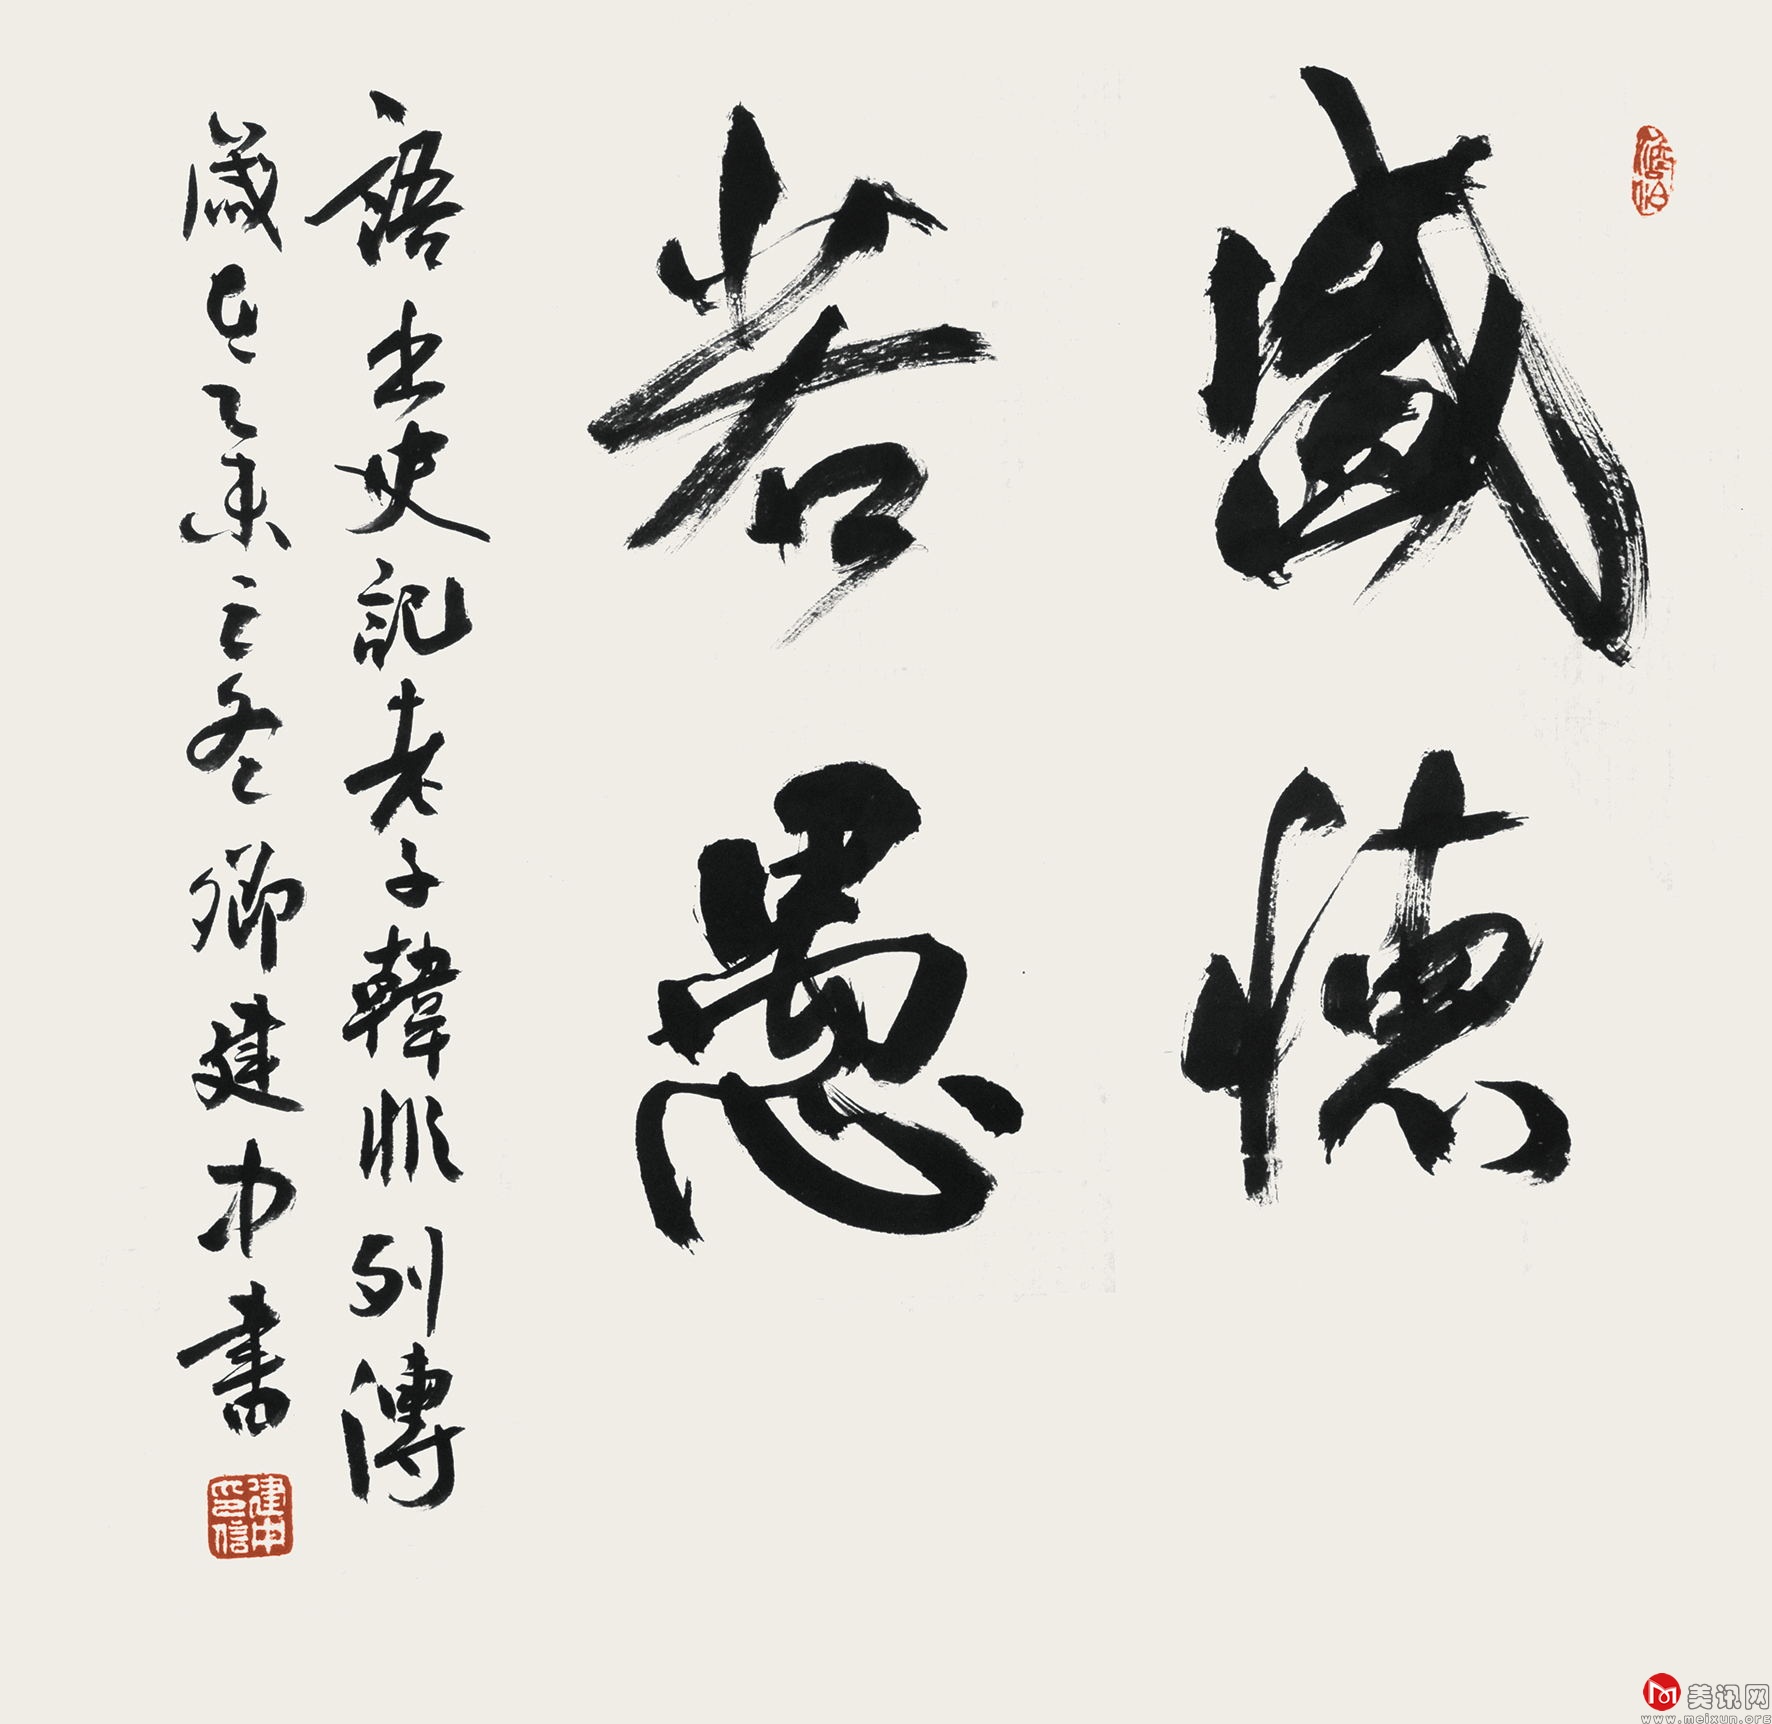 盛德
若愚
語出史記老子韓非列傳
歲在乙未之冬卿建中書
建中印信
美讯网
www.meixun.org